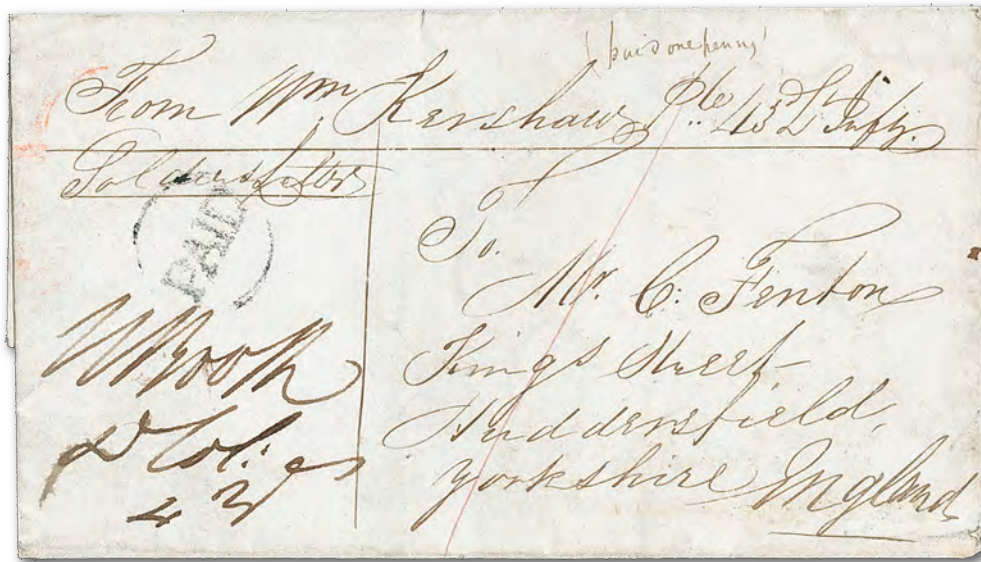 paid one penny
From Wm Kershaw Pte 43d Lt Infy.
Soldiers letter
PAID
To.
Mr. C: Fenton
Kings Street
Huddersfield,
Yorkshire England